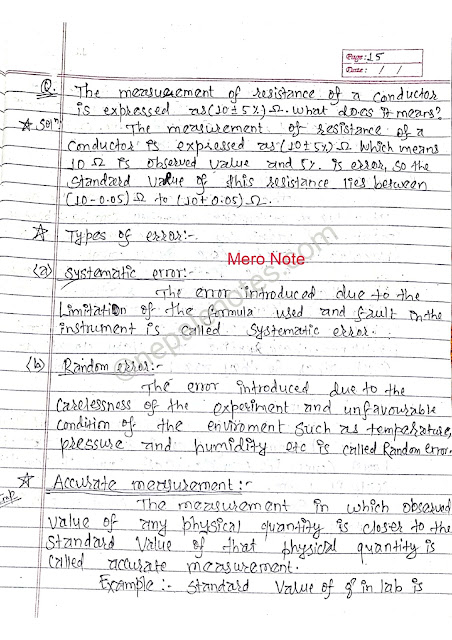 Page: 15
Date: / /
Q. The measurement of resistance of a conductor
is expressed as (10±5%) Ω. What does it means?
☆ Solⁿ:
The measurement of resistance of a
conductor is expressed as (10±5%) Ω which means
10 Ω is observed value and 5% is error, so the
standard value of this resistance lies between
(10-0.05) Ω to (10+0.05) Ω.
☆ Types of error:-
Mero Note
(a) Systematic error:-
The error introduced due to the
limitation of the formula used and fault in the
instrument is called systematic error.
(b) Random error:-
The error introduced due to the
carelessness of the experiment and unfavourable
condition of the enviroment such as temperature,
pressure and humidity etc is called Random error.
☆ Accurate measurement:-
Imp
The measurement in which observed
value of any physical quantity is closer to the
standard value of that physical quantity is
called accurate measurement.
Example:- standard value of 'g' in lab is
@nepalnotes.com